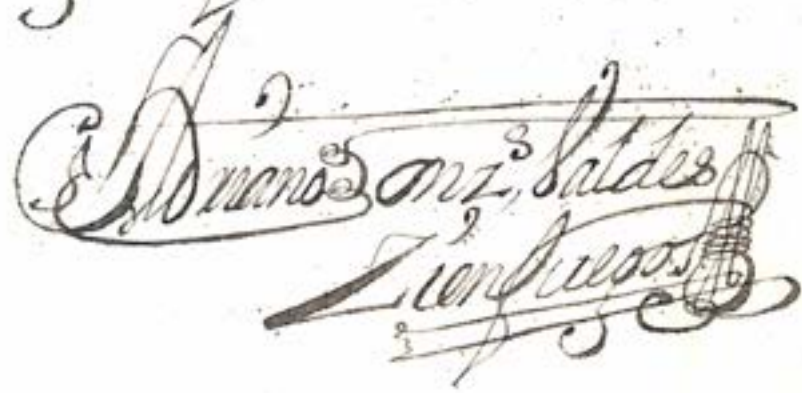 Adriano Gonzˢ, Valdes
Zienfuegos